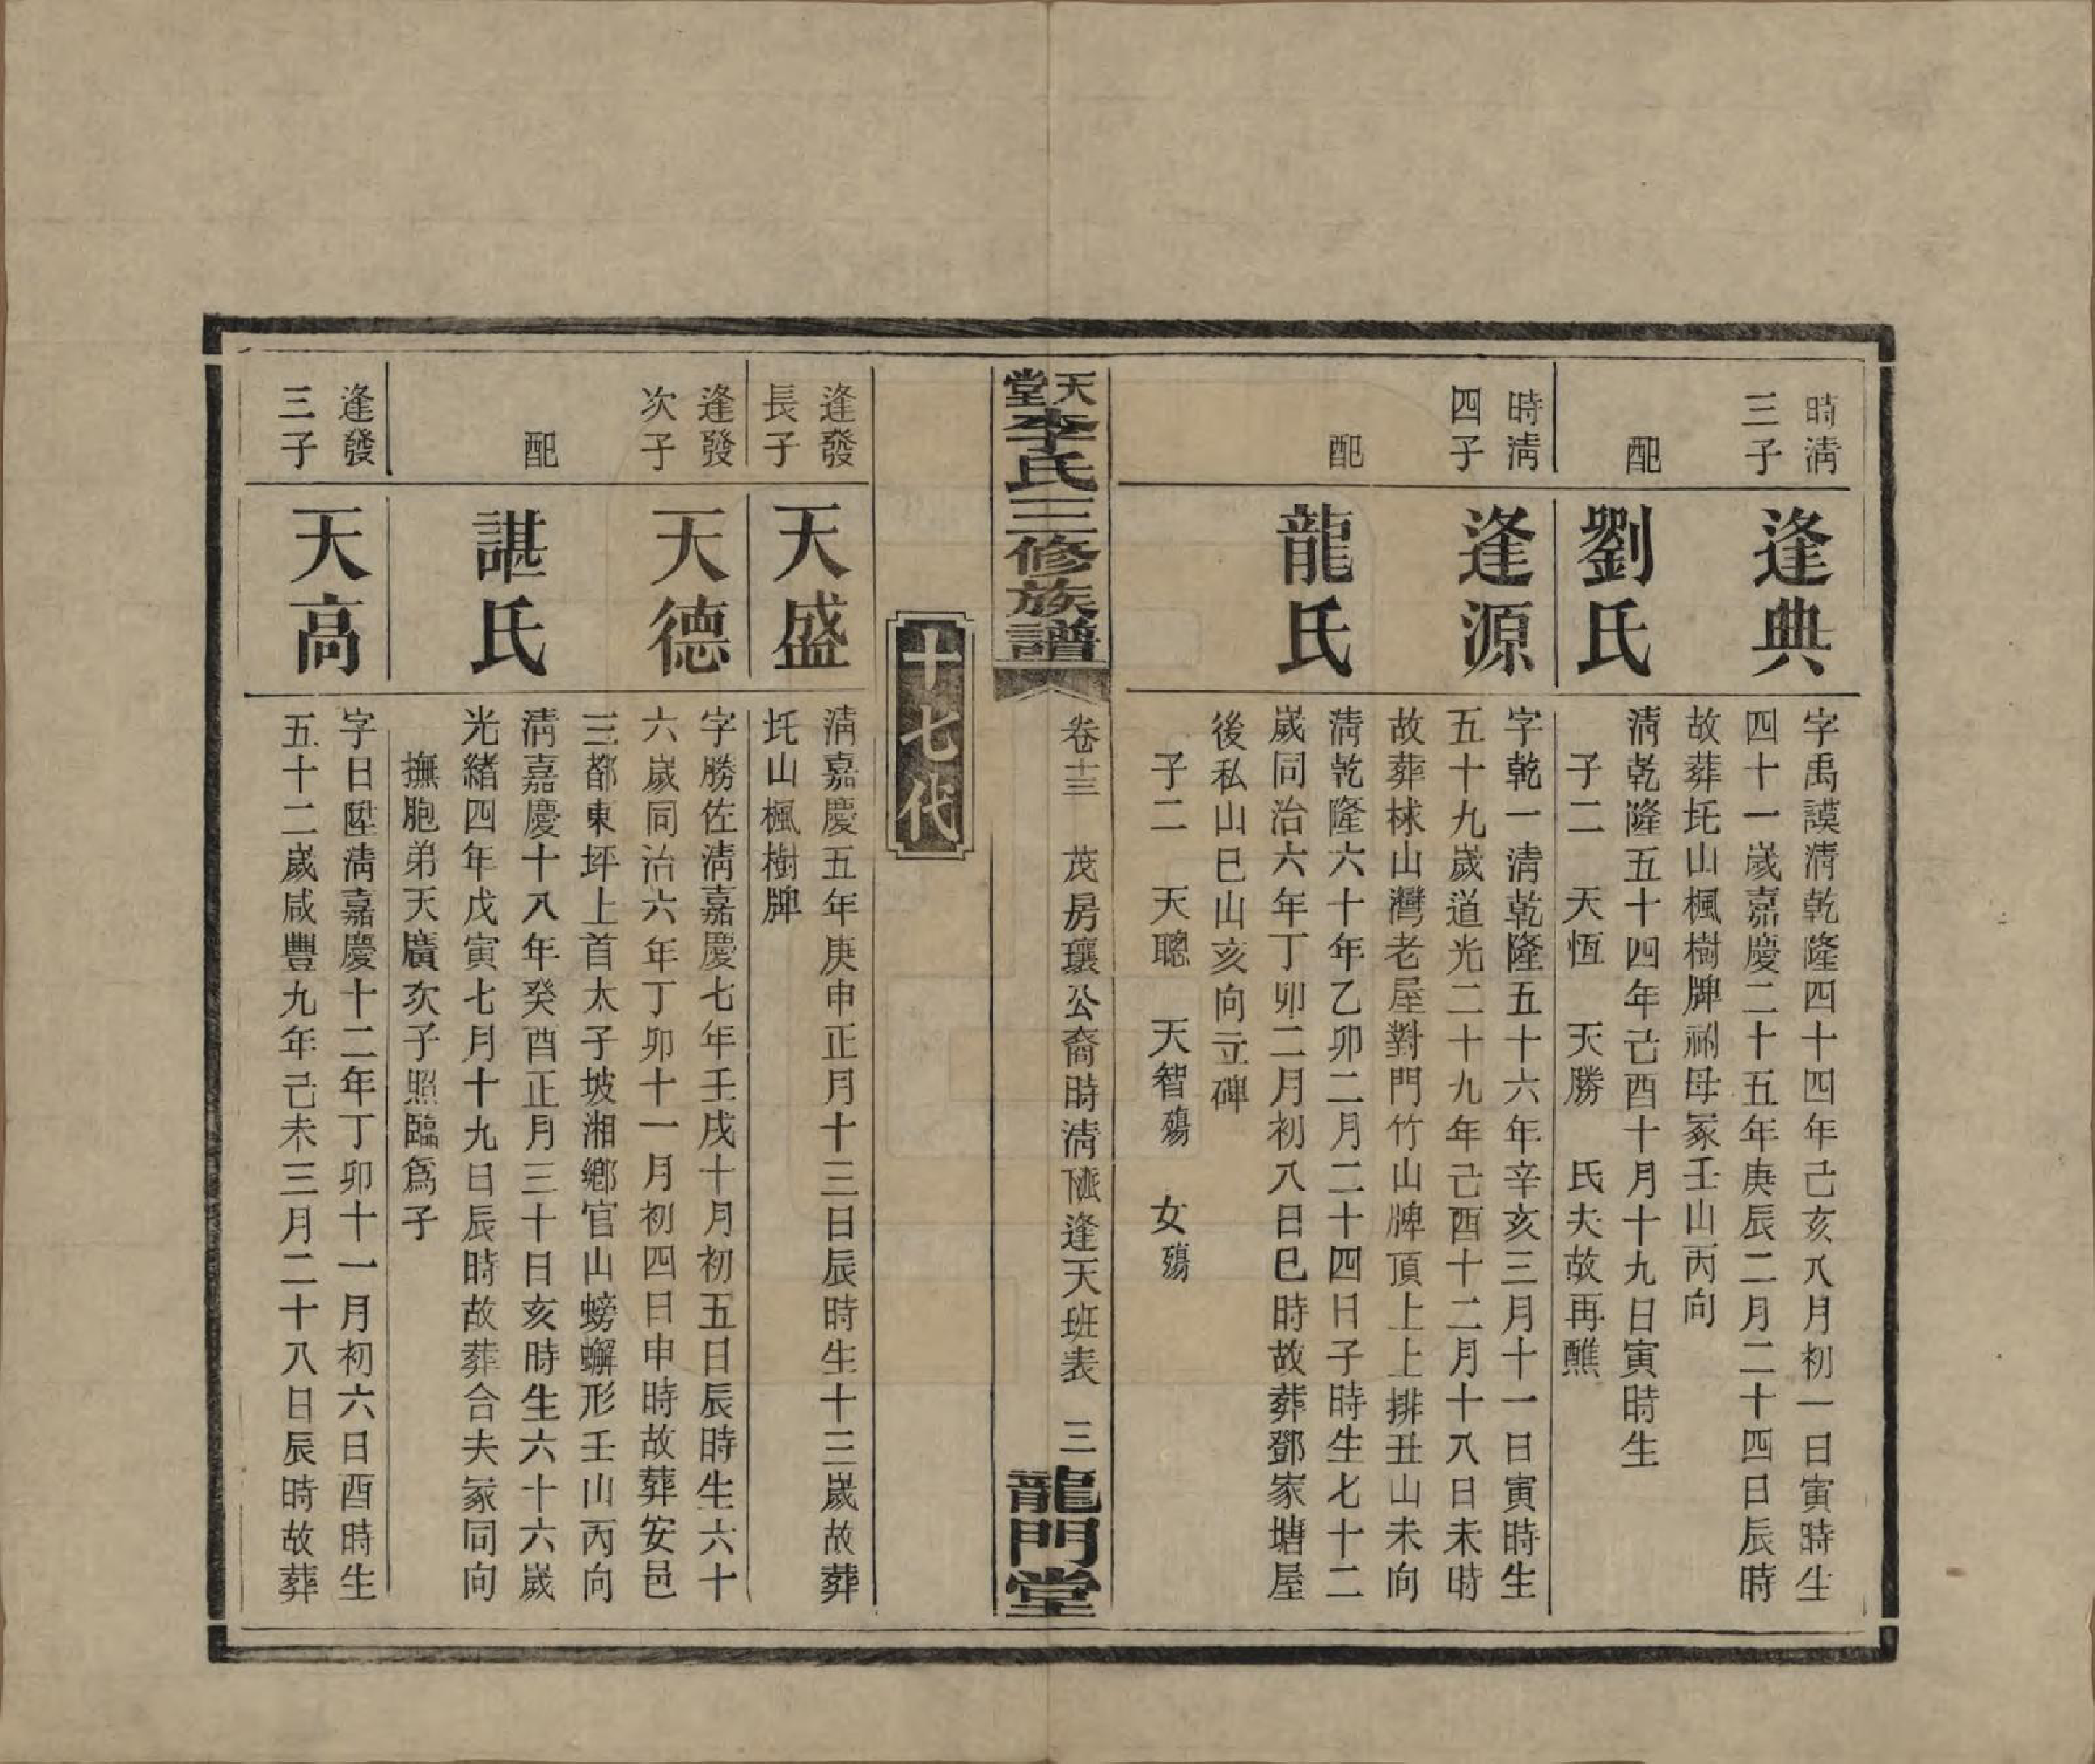 時清
三子
逢典
字禹謨清乾隆四十四年己亥八月初一日寅時生
四十一歲嘉慶二十五年庚辰二月二十四日辰時
故葬圫山楓樹牌祔母冢壬山丙向
配
劉氏
清乾隆五十四年己酉十月十九日寅時生
子二　天恆　天勝　氏夫故再醮
時清
四子
逢源
字乾一清乾隆五十六年辛亥三月十一日寅時生
五十九歲道光二十九年己酉十二月十八日未時
故葬梂山灣老屋對門竹山牌頂上上排丑山未向
配
龍氏
清乾隆六十年乙卯二月二十四日子時生七十二
歲同治六年丁卯二月初八日巳時故葬鄧家塘屋
後私山巳山亥向立碑
子二　天聰　天智殤　女殤
天堂李氏三修族譜
卷十三　茂房瓖公裔時清𠂢逢天班表　三
龍門堂
十七代
逢發
長子
天盛
清嘉慶五年庚申正月十三日辰時生十三歲故葬
圫山楓樹牌
逢發
次子
天德
字勝佐清嘉慶七年壬戌十月初五日辰時生六十
六歲同治六年丁卯十一月初四日申時故葬安邑
三都東坪上首太子坡湘鄉官山螃蠏形壬山丙向
配
諶氏
清嘉慶十八年癸酉正月三十日亥時生六十六歲
光緒四年戊寅七月十九日辰時故葬合夫冢同向
撫胞弟天廣次子照臨為子
逢發
三子
天高
字日陞清嘉慶十二年丁卯十一月初六日酉時生
五十二歲咸豐九年己未三月二十八日辰時故葬